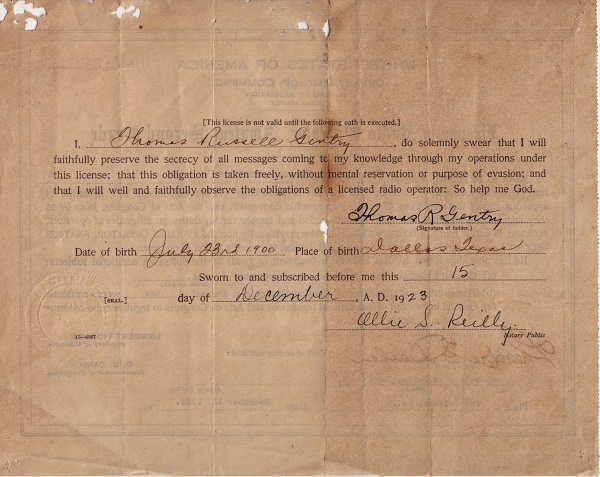 [This license is not valid until the following oath is executed.]
I, Thomas Russell Gentry, do solemnly swear that I will
faithfully preserve the secrecy of all messages coming to my knowledge through my operations under
this license; that this obligation is taken freely, without mental reservation or purpose of evasion; and
that I will well and faithfully observe the obligations of a licensed radio operator: So help me God.
Thomas R Gentry
(Signature of holder.)
Date of birth July 23rd 1900 Place of birth Dallas Texas
Sworn to and subscribed before me this 15
[SEAL] day of December, A. D. 1923
Ollie S. Reilly
Notary Public